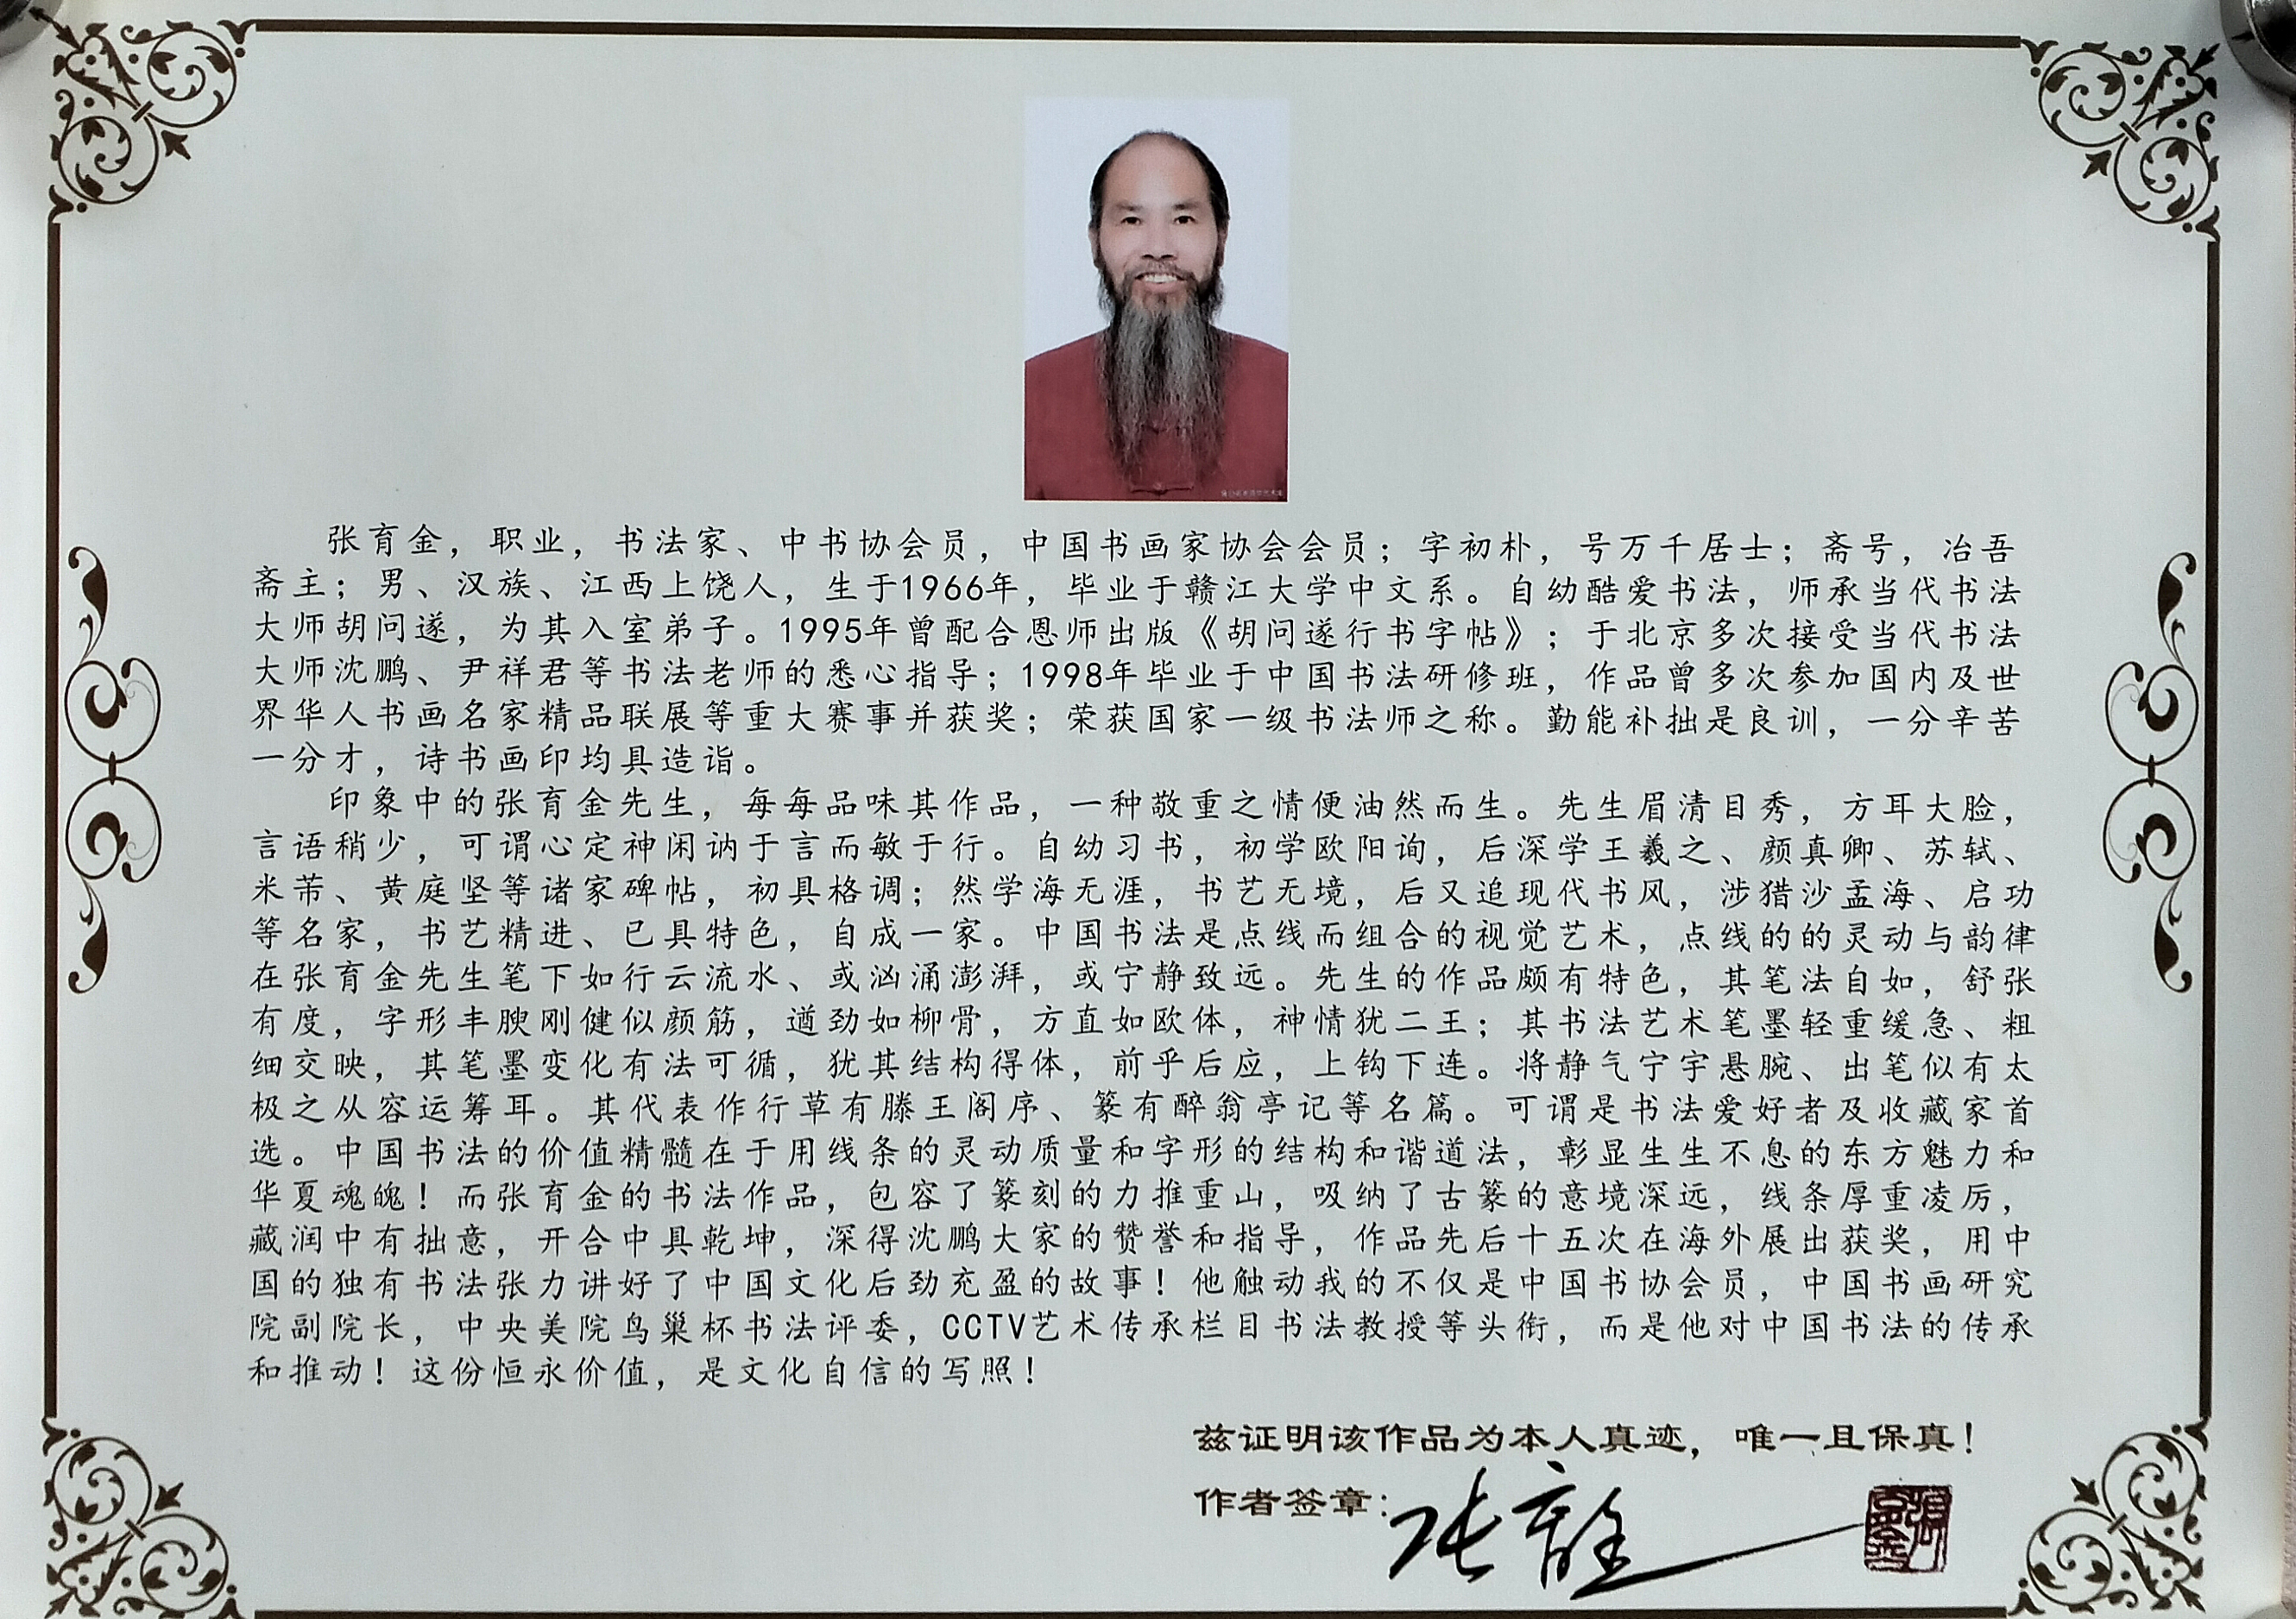 张育金，职业，书法家、中书协会员，中国书画家协会会员；字初朴，号万千居士；斋号，冶吾
斋主；男、汉族、江西上饶人，生于1966年，毕业于赣江大学中文系。自幼酷爱书法，师承当代书法
大师胡问遂，为其入室弟子。1995年曾配合恩师出版《胡问遂行书字帖》；于北京多次接受当代书法
大师沈鹏、尹祥君等书法老师的悉心指导；1998年毕业于中国书法研修班，作品曾多次参加国内及世
界华人书画名家精品联展等重大赛事并获奖；荣获国家一级书法师之称。勤能补拙是良训，一分辛苦
一分才，诗书画印均具造诣。
印象中的张育金先生，每每品味其作品，一种敬重之情便油然而生。先生眉清目秀，方耳大脸，
言语稍少，可谓心定神闲讷于言而敏于行。自幼习书，初学欧阳询，后深学王羲之、颜真卿、苏轼、
米芾、黄庭坚等诸家碑帖，初具格调；然学海无涯，书艺无境，后又追现代书风，涉猎沙孟海、启功
等名家，书艺精进、已具特色，自成一家。中国书法是点线而组合的视觉艺术，点线的的灵动与韵律
在张育金先生笔下如行云流水、或汹涌澎湃，或宁静致远。先生的作品颇有特色，其笔法自如，舒张
有度，字形丰腴刚健似颜筋，遒劲如柳骨，方直如欧体，神情犹二王；其书法艺术笔墨轻重缓急、粗
细交映，其笔墨变化有法可循，犹其结构得体，前乎后应，上钩下连。将静气宁宇悬腕、出笔似有太
极之从容运筹耳。其代表作行草有滕王阁序、篆有醉翁亭记等名篇。可谓是书法爱好者及收藏家首
选。中国书法的价值精髓在于用线条的灵动质量和字形的结构和谐道法，彰显生生不息的东方魅力和
华夏魂魄！而张育金的书法作品，包容了篆刻的力推重山，吸纳了古篆的意境深远，线条厚重凌厉，
藏润中有拙意，开合中具乾坤，深得沈鹏大家的赞誉和指导，作品先后十五次在海外展出获奖，用中
国的独有书法张力讲好了中国文化后劲充盈的故事！他触动我的不仅是中国书协会员，中国书画研究
院副院长，中央美院鸟巢杯书法评委，CCTV艺术传承栏目书法教授等头衔，而是他对中国书法的传承
和推动！这份恒永价值，是文化自信的写照！
兹证明该作品为本人真迹，唯一且保真！
作者签章：张育金
張育金